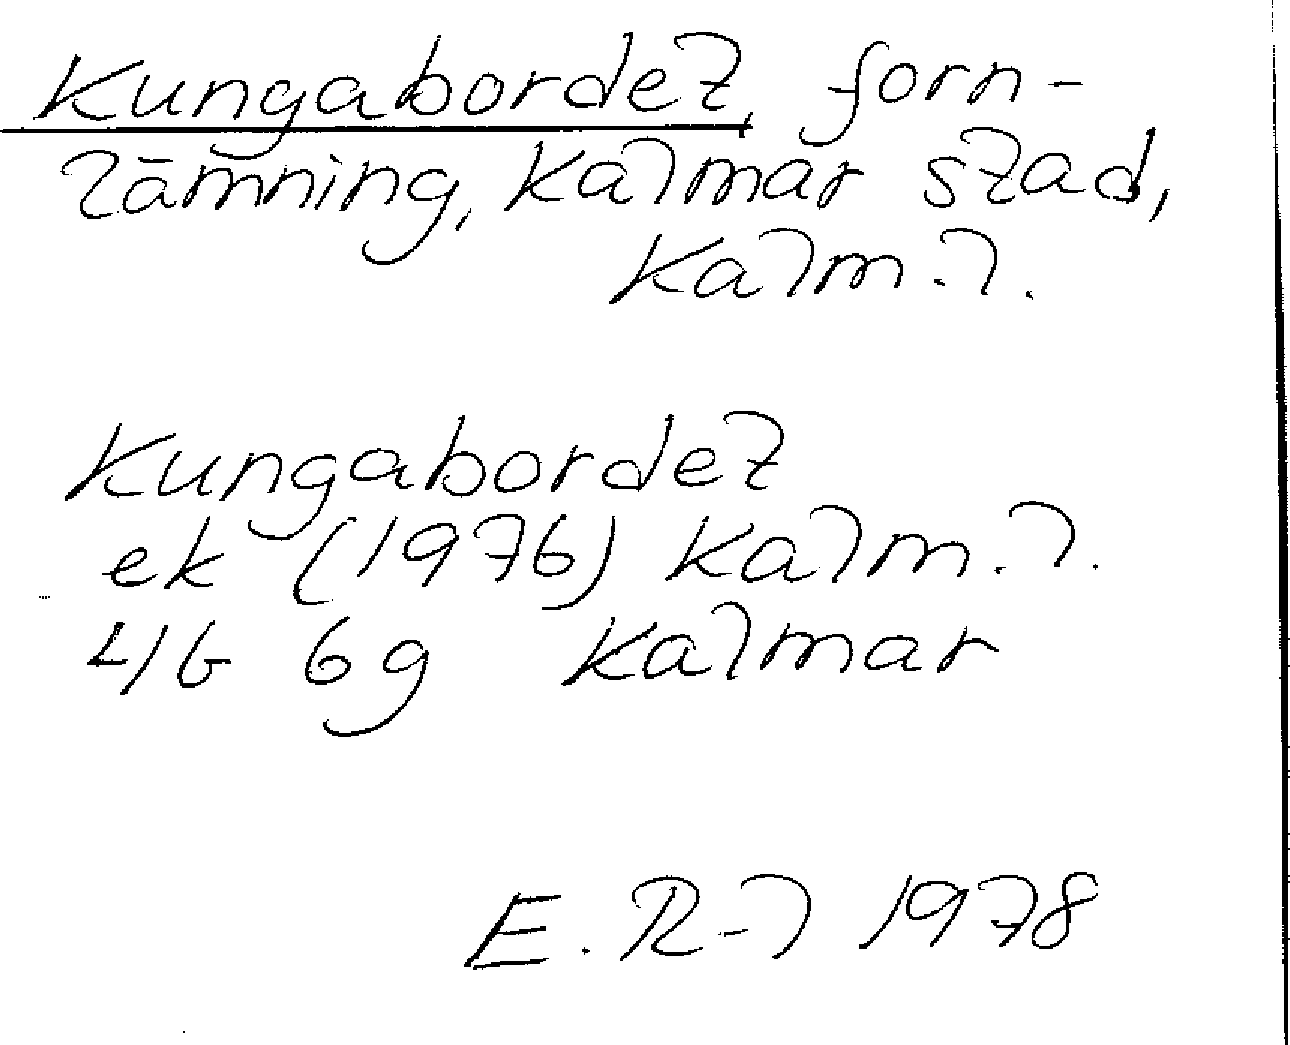 Kungabordet, forn-
lämning, Kalmar stad,
Kalm. l.
Kungabordet
ek (1976) Kalm. l.
4G 6g Kalmar
E. R-l 1978